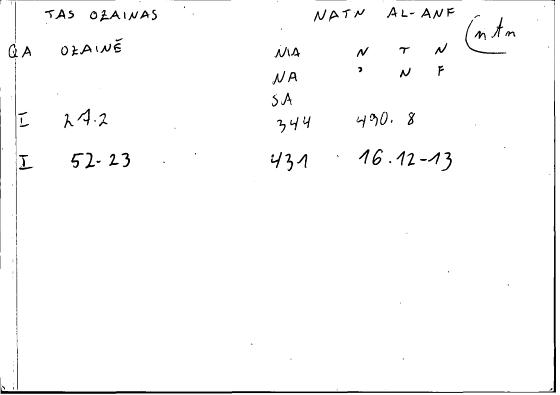 TAS OŻAINAS NATN AL-ANF (ntn
QA OŻAINĒ MA N T N
NA ' N F
SA
I 27.2 344 490. 8
I 52-23 431 16.12-13